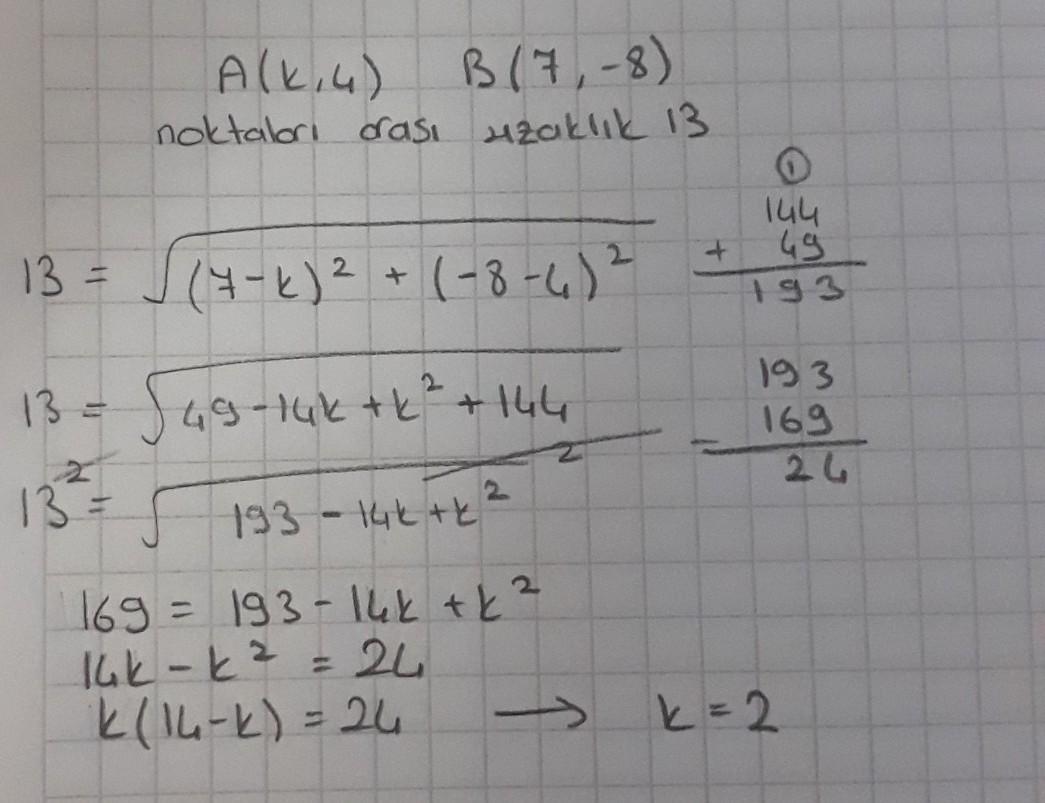 A(k,4) B(7,-8)
noktaları arası uzaklık 13
13 = √(7-k)² + (-8-4)²
①
144
+ 49
193
13 = √49-14k+k²+144
193
- 169
24
13² = √193-14k+k² ²
169 = 193-14k+k²
14k-k² = 24
k(14-k) = 24 → k = 2